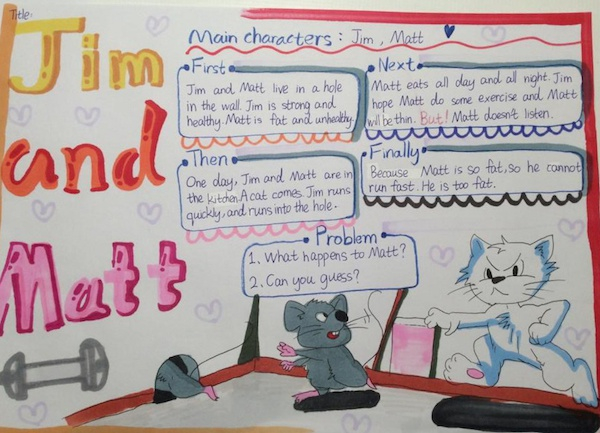 Title:
Jim
and
Matt
Main characters: Jim, Matt
First
Jim and Matt live in a hole
in the wall. Jim is strong and
healthy. Matt is fat and unhealthy.
Next
Matt eats all day and all night. Jim
hope Matt do some exercise and Matt
will be thin. But! Matt doesn't listen.
Then
One day, Jim and Matt are in
the kitchen. A cat comes. Jim runs
quickly, and runs into the hole.
Finally
Because Matt is so fat, so he cannot
run fast. He is too fat.
Problem
1. What happens to Matt?
2. Can you guess?